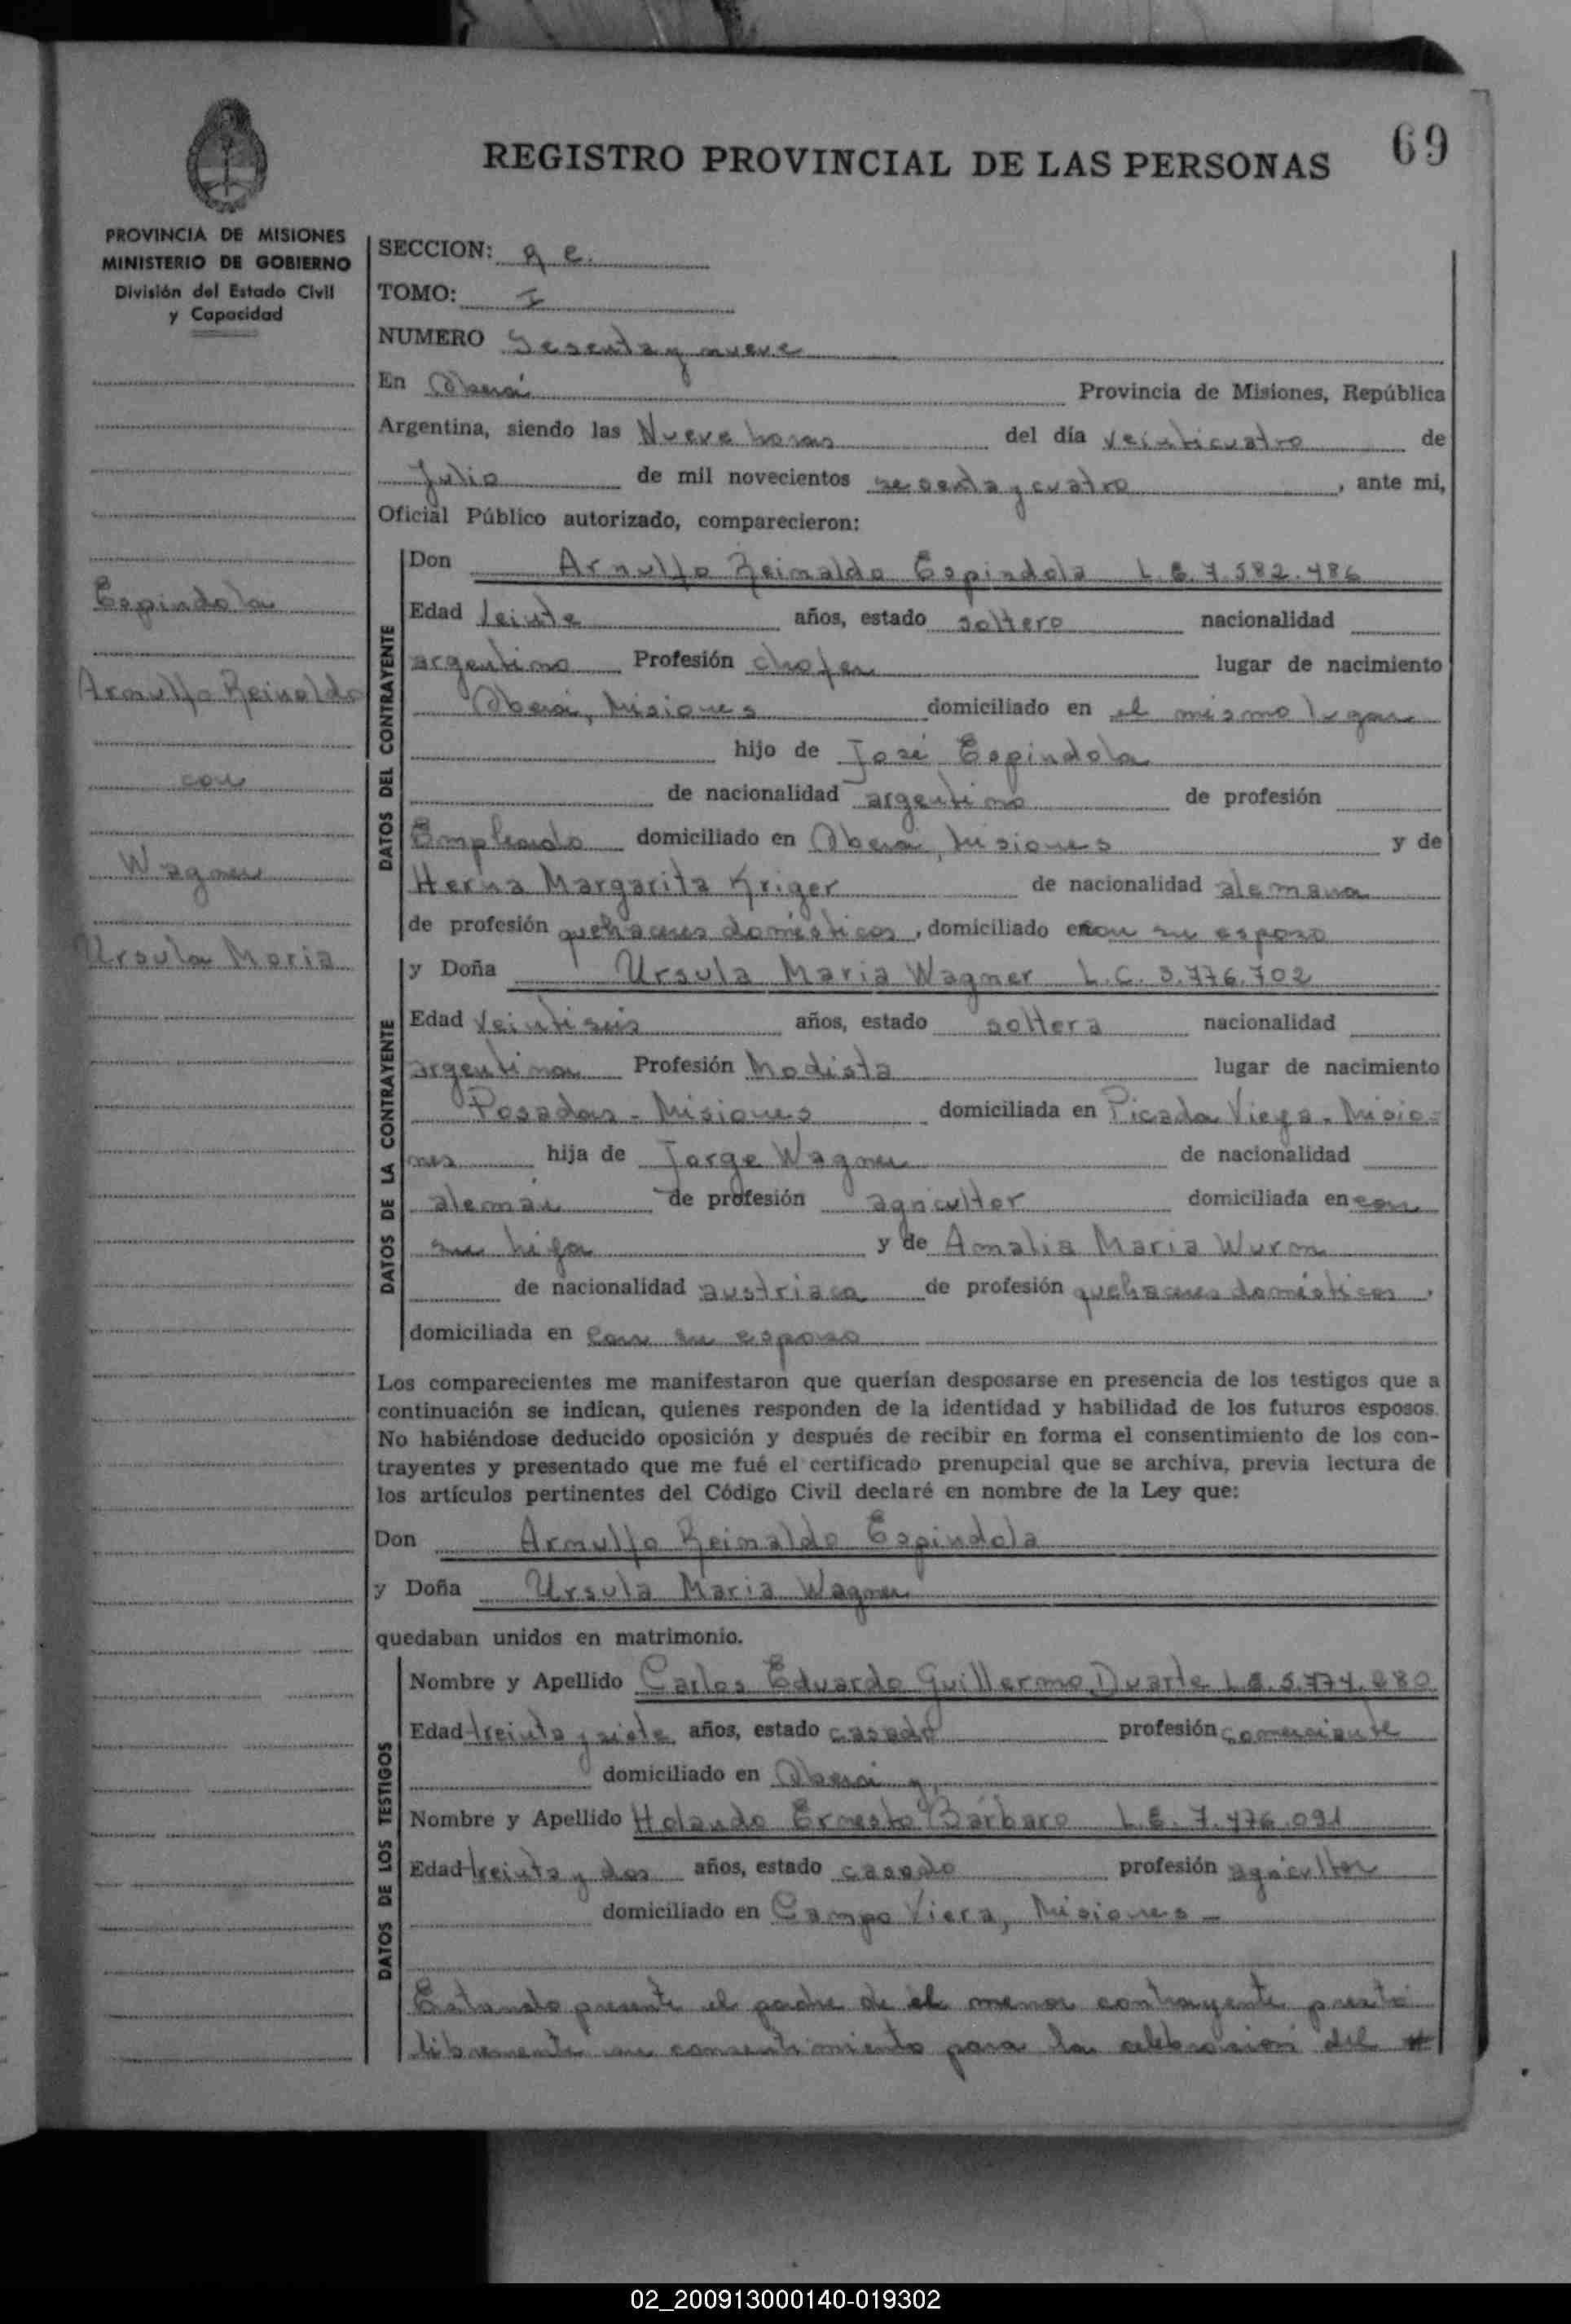 69
REGISTRO PROVINCIAL DE LAS PERSONAS
PROVINCIA DE MISIONES
MINISTERIO DE GOBIERNO
División del Estado Civil
y Capacidad
Espindola
Arnulfo Reinaldo
con
Wagner
Ursula Maria
SECCION:
TOMO: I
NUMERO Sesenta y nueve
En Oberá Provincia de Misiones, República
Argentina, siendo las Nueve horas del día veinticuatro de
Julio de mil novecientos sesenta y cuatro, ante mi,
Oficial Público autorizado, comparecieron:
DATOS DEL CONTRAYENTE
Don Arnulfo Reinaldo Espindola L.E. 7.582.486
Edad Veinte años, estado soltero nacionalidad
argentino Profesión chofer lugar de nacimiento
Oberá, Misiones domiciliado en el mismo lugar
hijo de José Espindola
de nacionalidad argentino de profesión
Empleado domiciliado en Oberá, Misiones y de
Herna Margarita Kriger de nacionalidad alemana
de profesión quehaceres domésticos, domiciliado en con su esposo
DATOS DE LA CONTRAYENTE
y Doña Ursula Maria Wagner L.C. 3.776.702
Edad Veintiseis años, estado soltera nacionalidad
argentina Profesión Modista lugar de nacimiento
Posadas - Misiones domiciliada en Picada Vieja - Misio=
nes hija de Jorge Wagner de nacionalidad
alemán de profesión agricultor domiciliada en con
su hija y de Amalia Maria Wurm
de nacionalidad austriaca de profesión quehaceres domésticos,
domiciliada en con su esposo
Los comparecientes me manifestaron que querían desposarse en presencia de los testigos que a
continuación se indican, quienes responden de la identidad y habilidad de los futuros esposos.
No habiéndose deducido oposición y después de recibir en forma el consentimiento de los con-
trayentes y presentado que me fué el certificado prenupcial que se archiva, previa lectura de
los artículos pertinentes del Código Civil declaré en nombre de la Ley que:
Don Arnulfo Reinaldo Espindola
y Doña Ursula Maria Wagner
quedaban unidos en matrimonio.
DATOS DE LOS TESTIGOS
Nombre y Apellido Carlos Eduardo Guillermo Duarte L.E. 5.774.280
Edad treinta y siete años, estado casado profesión comerciante
domiciliado en Oberá y
Nombre y Apellido Holando Ernesto Bárbaro L.E. 7.476.091
Edad treinta y dos años, estado casado profesión agricultor
domiciliado en Campo Viera, Misiones -
Estando presente el padre de el menor contrayente prestó
libremente su consentimiento para la celebración del
02_200913000140-019302